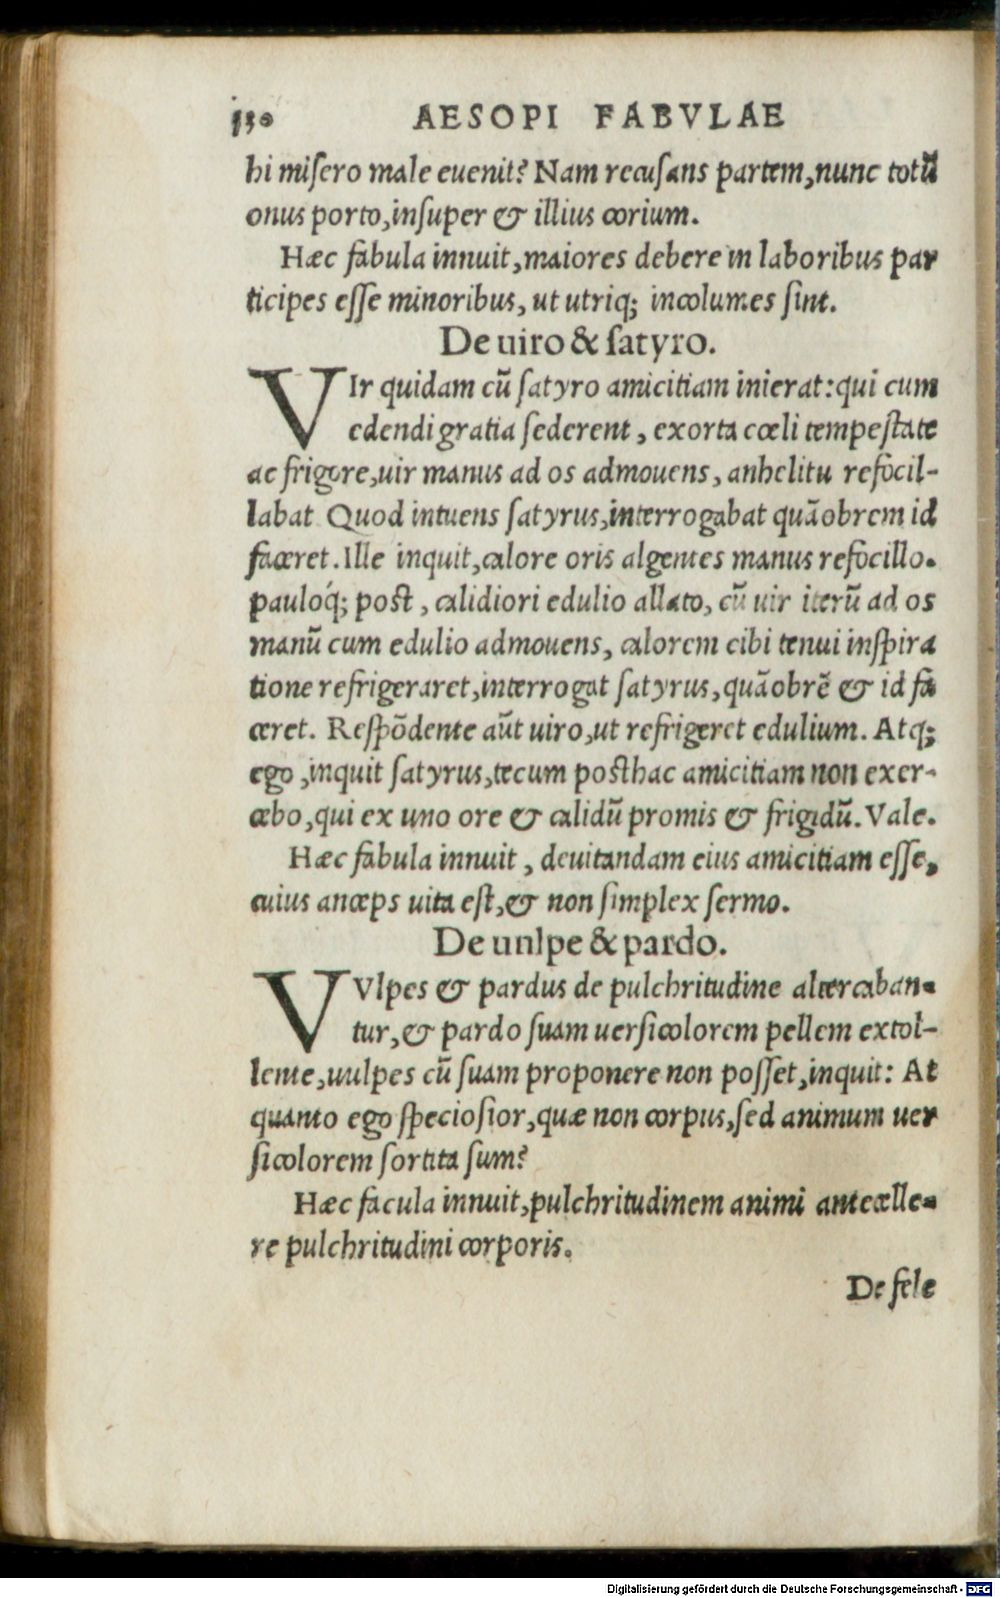 130 AESOPI FABVLAE
hi miſero male euenit? Nam recuſans partem, nunc totũ
onus porto, inſuper & illius corium.
Hæc fabula innuit, maiores debere in laboribus par
ticipes eſſe minoribus, ut utriq; incolumes ſint.
De uiro & ſatyro.
VIr quidam cũ ſatyro amicitiam inierat: qui cum
edendi gratia ſederent, exorta cœli tempeſtate
ac frigore, uir manus ad os admouens, anhelitu refocil-
labat Quod intuens ſatyrus, interrogabat quãobrem id
faceret. Ille inquit, calore oris algentes manus refocillo.
pauloq́; poſt, calidiori edulio allato, cũ uir iterũ ad os
manũ cum edulio admouens, calorem cibi tenui inſpira
tione refrigeraret, interrogat ſatyrus, quãobrẽ & id fa
ceret. Reſpõdente aũt uiro, ut refrigeret edulium. Atq;
ego, inquit ſatyrus, tecum poſthac amicitiam non exer-
cebo, qui ex uno ore & calidũ promis & frigidũ. Vale.
Hæc fabula innuit, deuitandam eius amicitiam eſſe,
cuius anceps uita eſt, & non ſimplex ſermo.
De unlpe & pardo.
VVlpes & pardus de pulchritudine altercaban-
tur, & pardo ſuam uerſicolorem pellem extol-
lente, uulpes cũ ſuam proponere non poſſet, inquit: At
quanto ego ſpecioſior, quæ non corpus, ſed animum uer
ſicolorem ſortita ſum?
Hæc facula innuit, pulchritudinem animi antecelle-
re pulchritudini corporis.
De fele
Digitalisierung gefördert durch die Deutsche Forschungsgemeinschaft - DFG